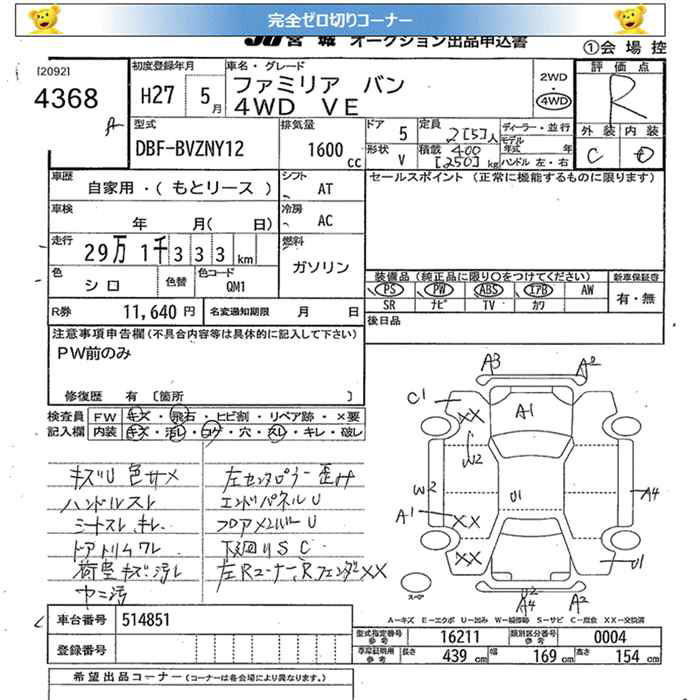 完全ゼロ切りコーナー
JU宮城 オークション出品申込書
①会場控
[2092]
4368
初度登録年月
H27 5月
車名・グレード
ファミリア バン
4WD VE
2WD
4WD
評価点
R
外装 内装
C D
型式
DBF-BVZNY12
排気量
1600cc
ドア 5
定員 2[5]人
ディーラー・並行
モデル年式 年
形状 V
積載 400[250]kg
ハンドル 左・右
車歴
自家用・(もとリース)
シフト AT
セールスポイント (正常に機能するものに限ります)
車検
年 月(日)
冷房 AC
走行
29万1千333km
燃料
ガソリン
色 シロ
色替
色コード QM1
装備品(純正品に限り○をつけてください)
新車保証書
PS PW ABS エアB AW
SR ナビ TV カワ
有・無
R券 11,640円
名変通知期限 月 日
後日品
注意事項申告欄(不具合内容等は具体的に記入して下さい)
PW前のみ
修復歴 有 [箇所 ]
検査員 FW キズ・飛石・ヒビ割・リペア跡・×要
記入欄 内装 キズ・汚レ・コゲ・穴・スレ・キレ・破レ
キズU色サメ
ハンドルスレ
シートスレ キレ
ドアトリムワレ
荷室キズ・汚レ
ヤニ汚
左センタピラー歪み
エンドパネルU
フロアメンバーU
下廻りSC
左Rコーナー、RフェンダXX
A3 A2
C1
XX
A1
W2
W2
U1
A4
A1
XX
XX
U1
U2
A4 A2
スペア
A−キズ E−エクボ U−凹み W−補修跡 S−サビ C−腐食 XX−交換済
車台番号 514851
登録番号
型式指定番号 参考 16211
類別区分番号 参考 0004
車庫証明用 参考
長さ 439cm
幅 169cm
高さ 154cm
希望出品コーナー(コーナーは各会場により異なります。)